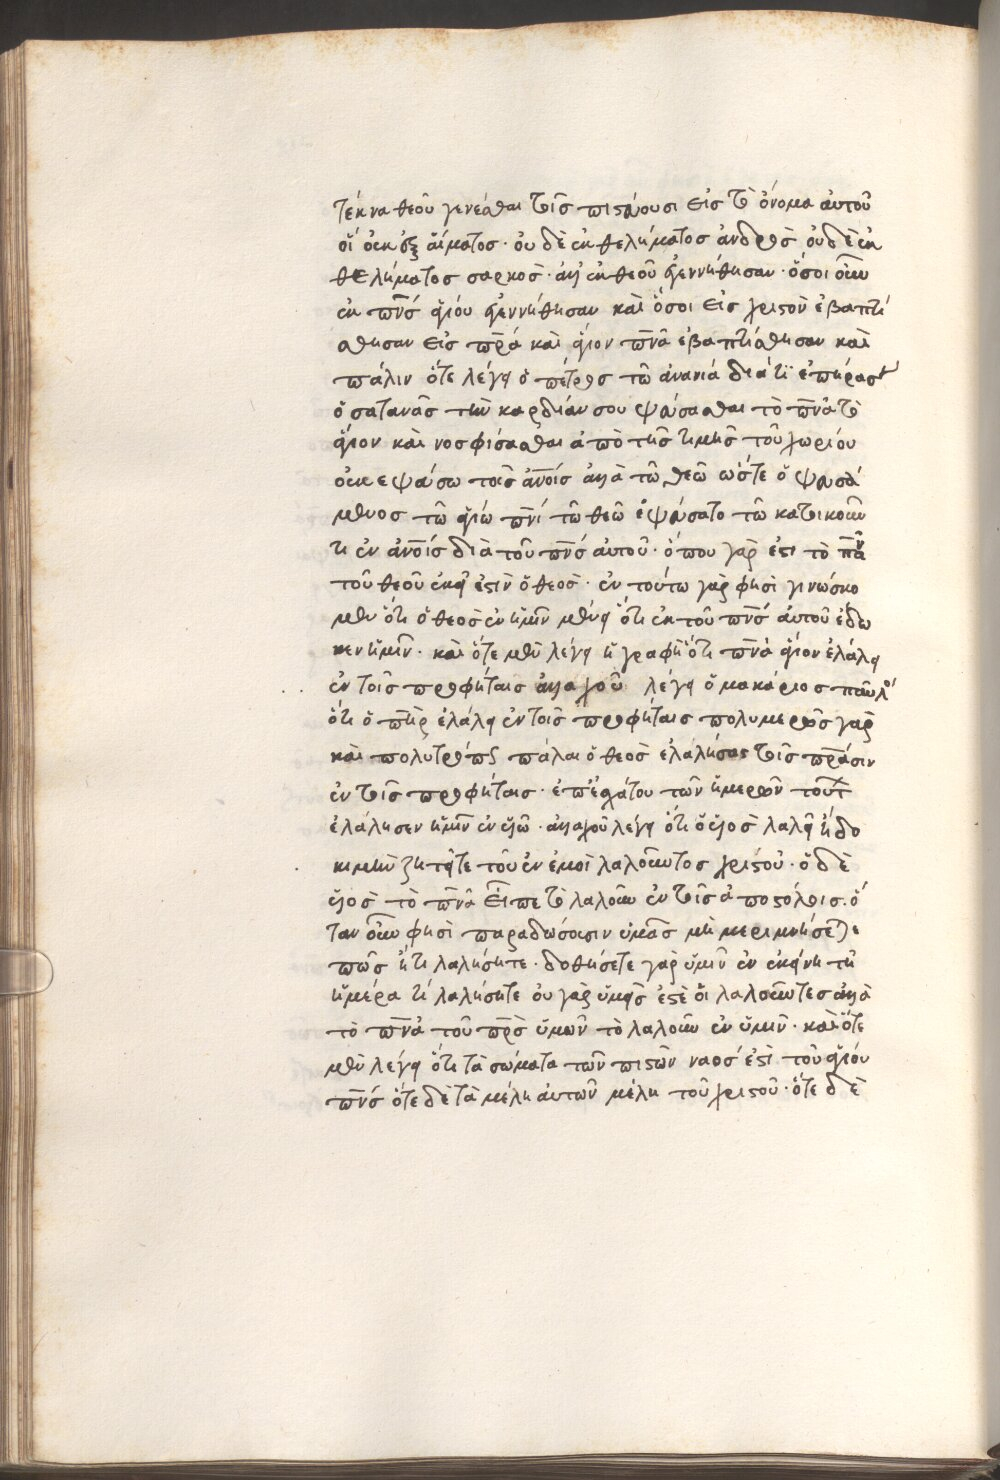 τέκνα θεοῦ γενέσθαι τοῖς πιστεύουσι εἰς τὸ ὄνομα αὐτοῦ
οἳ οὐκ ἐξ αἵματος· οὐ δὲ ἐκ θελήματος ἀνδρὸς οὐδὲ ἐκ
θελήματος σαρκὸς· ἀλλ' ἐκ θεοῦ ἐγεννήθησαν· ὅσοι οὖν
ἐκ πν̅ς ἁγίου ἐγεννήθησαν καὶ ὅσοι εἰς χριστὸν ἐβαπτί
σθησαν εἰς πρ̅α καὶ ἅγιον πν̅α ἐβαπτίσθησαν καὶ
πάλιν ὅτε λέγει ὁ πέτρος τῶ ἀνανία διάτϊ ἐπείρασεν
ὁ σατανᾶς τὴν καρδίαν σου ψεύσασθαι τὸ πν̅α τὸ
ἅγιον καὶ νοσφίσασθαι ἀπὸ τῆς τιμῆς τοῦ χωρίου
οὐκ εψεύσω τοῖς ἀν̅οις ἀλλὰ τῶ θεῶ ὥστε ὁ ψευσά
μενος τῶ ἁγίω πν̅ι τῶ θεῶ ἐψεύσατο τῶ κατοικοῦν
τι ἐν ἀν̅οις διὰ τοῦ πν̅ς αὐτοῦ· ὅπου γὰρ ἐστι τὸ πν̅α
τοῦ θεοῦ ἐκεῖ ἐστὶν ὁ θεος· ἐν τούτω γὰρ φησὶ γινώσκο
μεν ὅτι ὁ θεὸς ἐν ἡμῖν μένει ὅτι ἐκ τοῦ πν̅ς αὐτοῦ ἔδω
κεν ἡμῖν· καὶ ὅτε μὲν λέγει ἡ γραφὴ ὅτι πν̅α ἅγιον ἐλάλει
ἐν τοῖς προφήταις ἀλλαχοῦ λέγει ὁ μακάριος παῦλος
ὅτι ὁ πη̅ρ ἐλάλει ἐν τοῖς προφήταις πολυμερῶς γὰρ
καὶ πολυτρόπως πάλαι ὁ θεος ἐλαλήσας τοῖς πρ̅άσιν
ἐν τοῖς προφήταις· ἐπ' ἐσχάτου τῶν ἡμερῶν τούτ
ἐλάλησεν ἡμῖν ἐν υἱῶ· ἀλλαχοῦ λέγει ὅτι ὁ υἱὸς λαλεῖ ἢ δο
κιμὴν ζητεῖτε τοῦ ἐν ἐμοὶ λαλοῦντος χριστοῦ· ὁ δὲ
υἱὸς τὸ πν̅α εἶπε τὸ λαλοῦν ἐν τοῖς ἀποστόλοις. ὅ
ταν οὖν φησὶ παραδώσωσιν ὑμᾶς μὴ μεριμνήσετε
πῶς ἢ τι λαλήσητε· δοθήσετε γὰρ ὑμῖν ἐν ἐκείνη τῆ
ἡμέρα τί λαλήσητε οὐ γὰρ ὑμεῖς ἐστὲ οἱ λαλοῦντες ἀλλὰ
τὸ πν̅α τοῦ πρ̅ὸς ὑμῶν τὸ λαλοῦν ἐν ὑμῖν· καὶ ὅτε
μὲν λέγει ὅτι τὰ σώματα τῶν πιστῶν ναός ἐστὶ τοῦ ἁγίου
πν̅ς ὅτε δὲ τὰ μέλη αὐτῶν μέλη τοῦ χριστοῦ· ὅτε δὲ